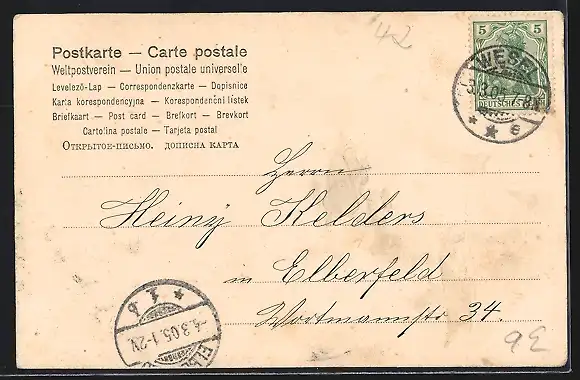 42
Postkarte — Carte postale
Weltpostverein — Union postale universelle
Levelező-Lap — Correspondenzkarte — Dopisnice
Karta korespondencyjna — Korespondenční lístek
Briefkaart — Post card — Brefkort — Brevkort
Cartolina postale — Tarjeta postal
Открытое-письмо. дописна карта
5 5
DEUTSCHES
WESEL
5.3.05
* * e
Herrn
Heinz Kelders
in Elberfeld
Wortmannstr 34.
6.3.05.1-2N
9E